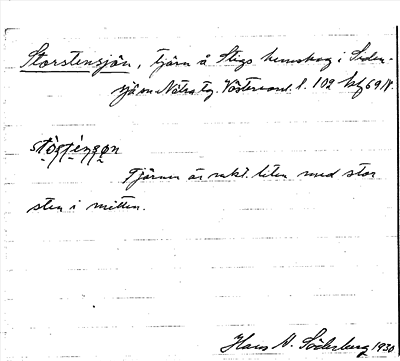 Storstensjön, tjärn å Stigs hemskog i Siden-
sjö sn Nätra tg. Västernorrl. l. 102
stögstengøn
Tjärnen är rukt. liten med stor
sten i mitten.
Hans N. Söderberg 1930